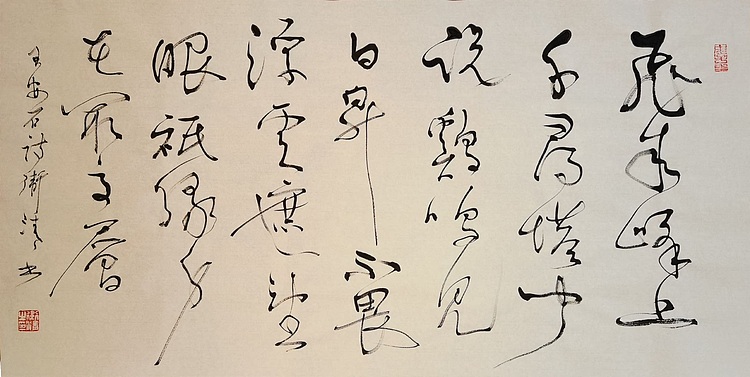 飛來峰上
千尋塔聞
說鷄鳴見
日昇不畏
浮雲遮望
眼祇緣身
在最高層
王安石詩衛清書